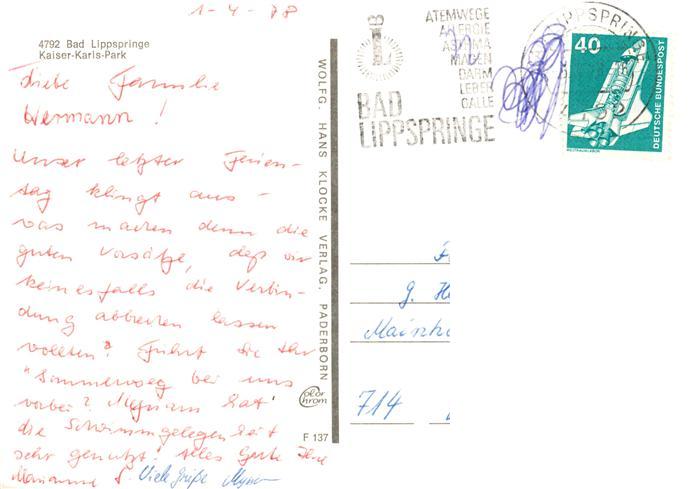 1-4-78
4792 Bad Lippspringe
Kaiser-Karls-Park
Liebe Familie
Hermann!
Unser letzter Ferien-
tag klingt aus -
was machen denn die
guten Vorsätze, daß wir
keinesfalls die Verbin-
dung abbreißen lassen
wollten? Führt die Ihr
"Sommerweg bei uns
vorbei? Myriam hat
die Schwimmgelegenheit
sehr genutzt! Alles Gute Ihre
Marianne S. Viele Grüße Myriam
WOLFG. HANS KLOCKE VERLAG, PADERBORN
color
chrom
F 137
ATEMWEGE
ALLERGIE
ASTHMA
MAGEN
DARM
LEBER
GALLE
BAD
LIPPSPRINGE
LIPPSPRING
40
DEUTSCHE BUNDESPOST
WELTRAUMLABOR
F
G. He
714